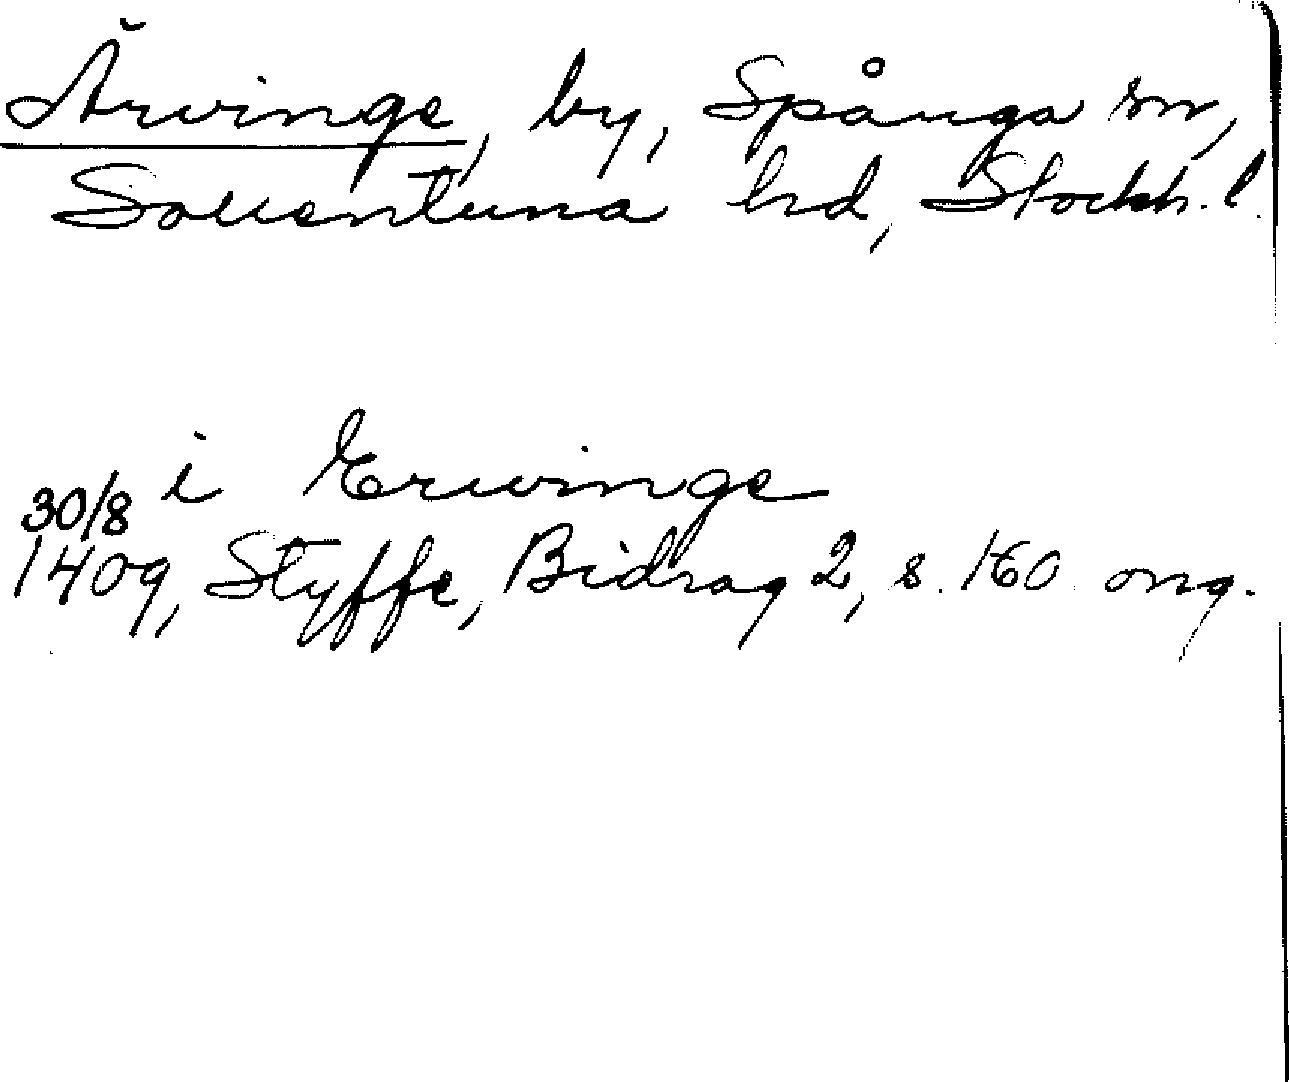 Ärvinge, by, Spånga sn,
Sollentuna hd, Stockh. l.
i Erwinge
30/8
1409, Styffe, Bidrag 2, s. 160 orig.